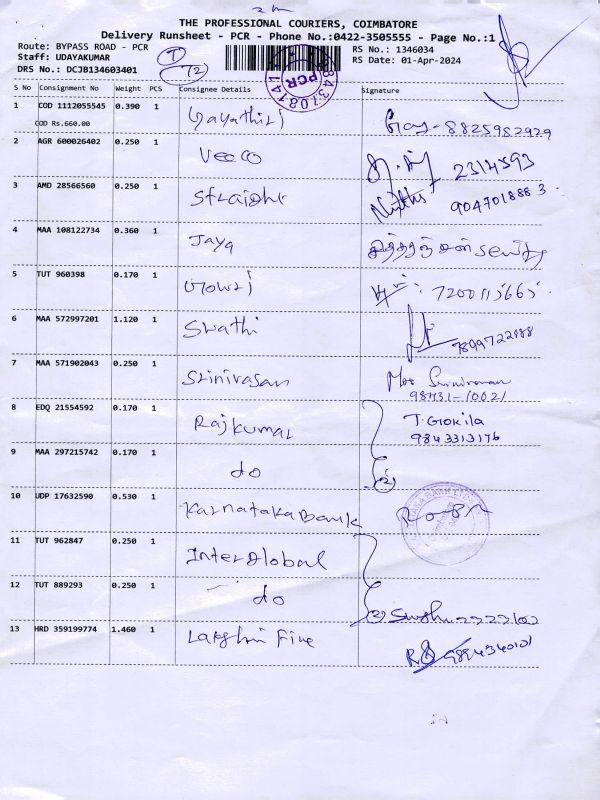 THE PROFESSIONAL COURIERS, COIMBATORE
Delivery Runsheet - PCR - Phone No.:0422-3505555 - Page No.:1
Route: BYPASS ROAD - PCR
RS No.: 1346034
Staff: UDAYAKUMAR
RS Date: 01-Apr-2024
DRS No.: DCJB134603401
PCR
S No Consignment No Weight PCS Consignee Details Signature
1 COD 1112055545 0.390 1 Gayathiri Gay - 8825982929
COD Rs.660.00
2 AGR 600026402 0.250 1 Veeco 2314593
3 AMD 28566560 0.250 1 Straight 9047018883
4 MAA 108122734 0.360 1 Jaya
5 TUT 960398 0.170 1 Gowri
6 MAA 572997201 1.120 1 Swathi
7 MAA 571902043 0.250 1 Srinivasan Srinivasan
98431-10021
8 EDQ 21554592 0.170 1 Rajkumar T. Gokila
9843313176
9 MAA 297215742 0.170 1 do (2)
10 UDP 17632590 0.530 1 Karnataka Bank
11 TUT 962847 0.250 1 Interglobal
12 TUT 889293 0.250 1 do
13 HRD 359199774 1.460 1 Lakshmi Fire